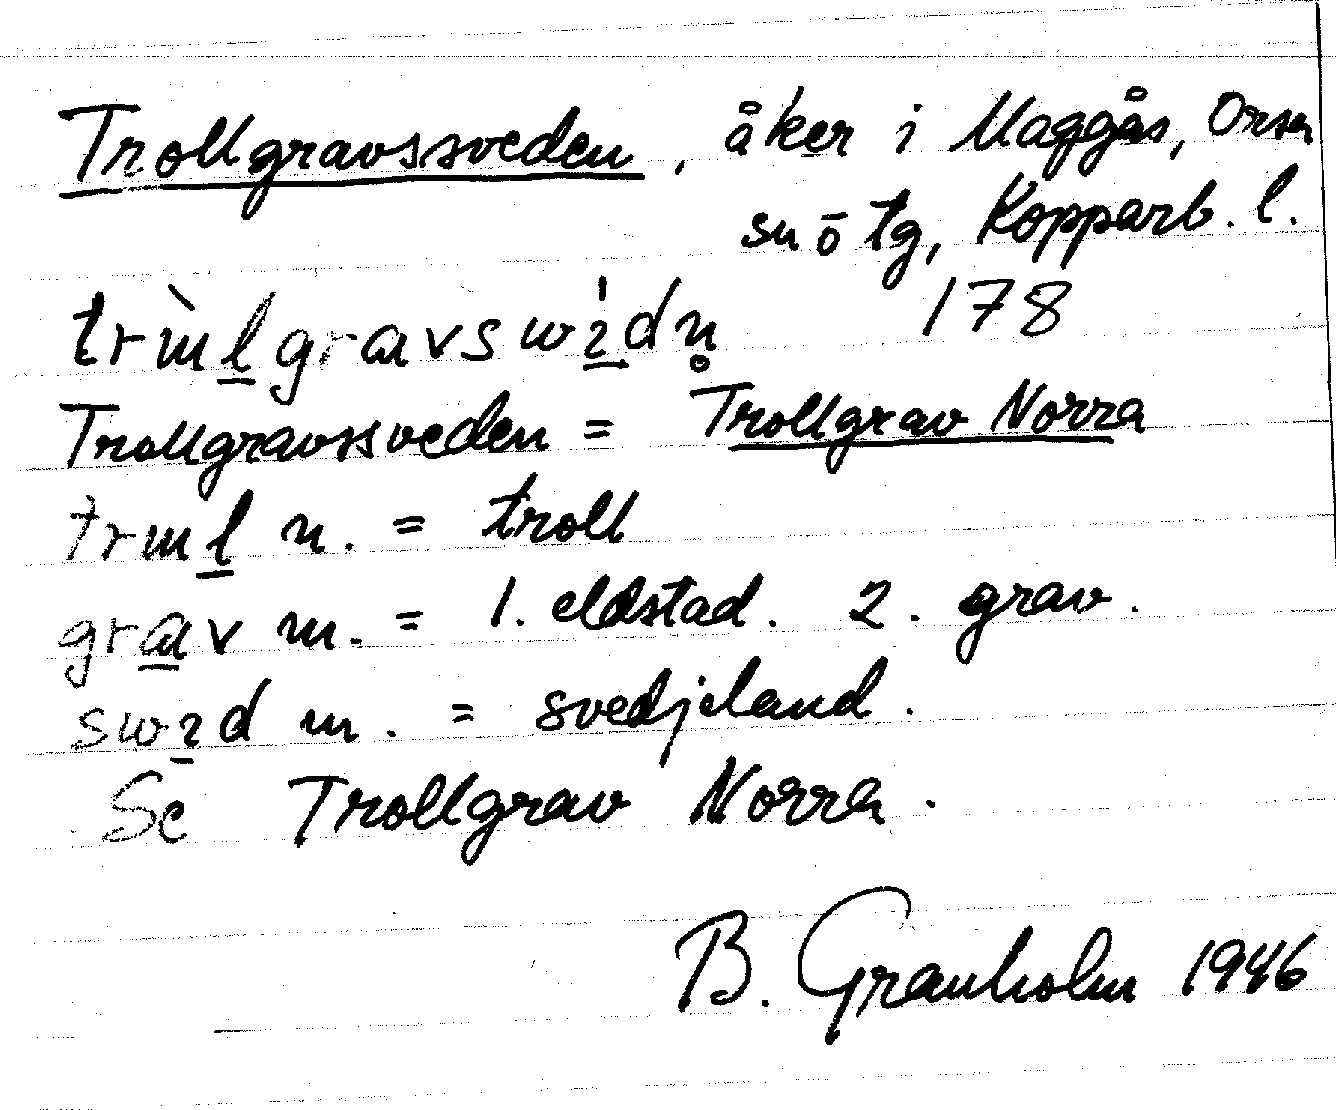 Trollgravssveden, åker i Maggås, Orsa
sn ö tg, Kopparb. l.
178
Trollgravssveden = Trollgrav Norra
n. = troll
grav m. = 1. eldstad. 2. grav.
m. = svedjeland.
Se Trollgrav Norra.
B. Granholm 1946